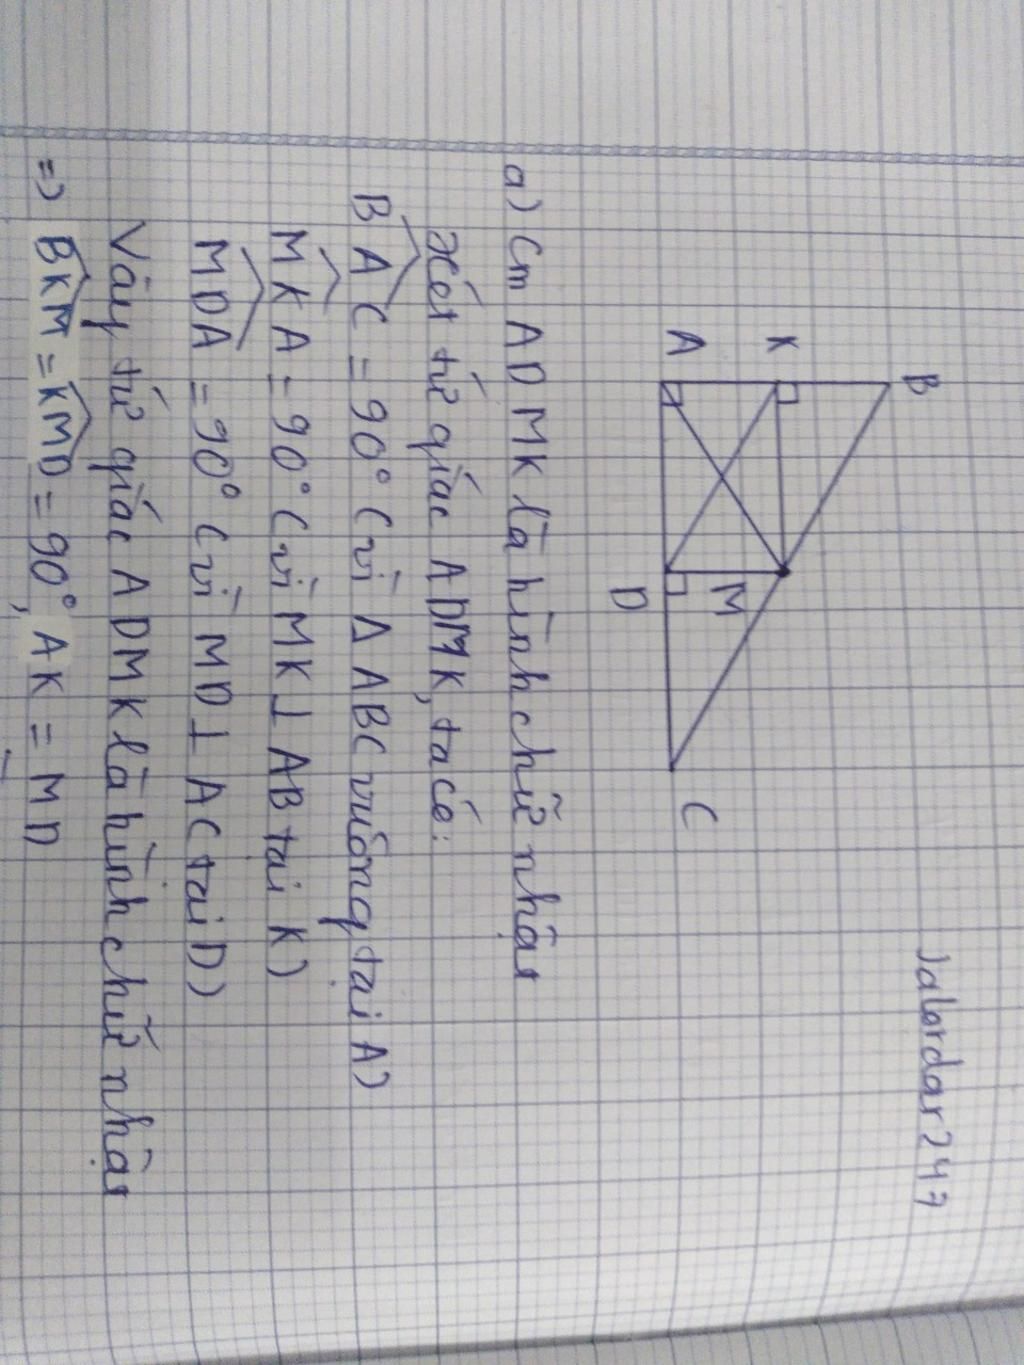 Jalordar247
B
K
A
M
D
C
a) Cm ADMK là hình chữ nhật
Xét tứ giác ADMK, ta có:
BAC = 90° (vì Δ ABC vuông tại A)
MKA = 90° (vì MK⊥ AB tại K)
MDA = 90° (vì MD⊥ AC tại D)
Vậy tứ giác ADMK là hình chữ nhật
=) BKM = KMD = 90°, AK = MD